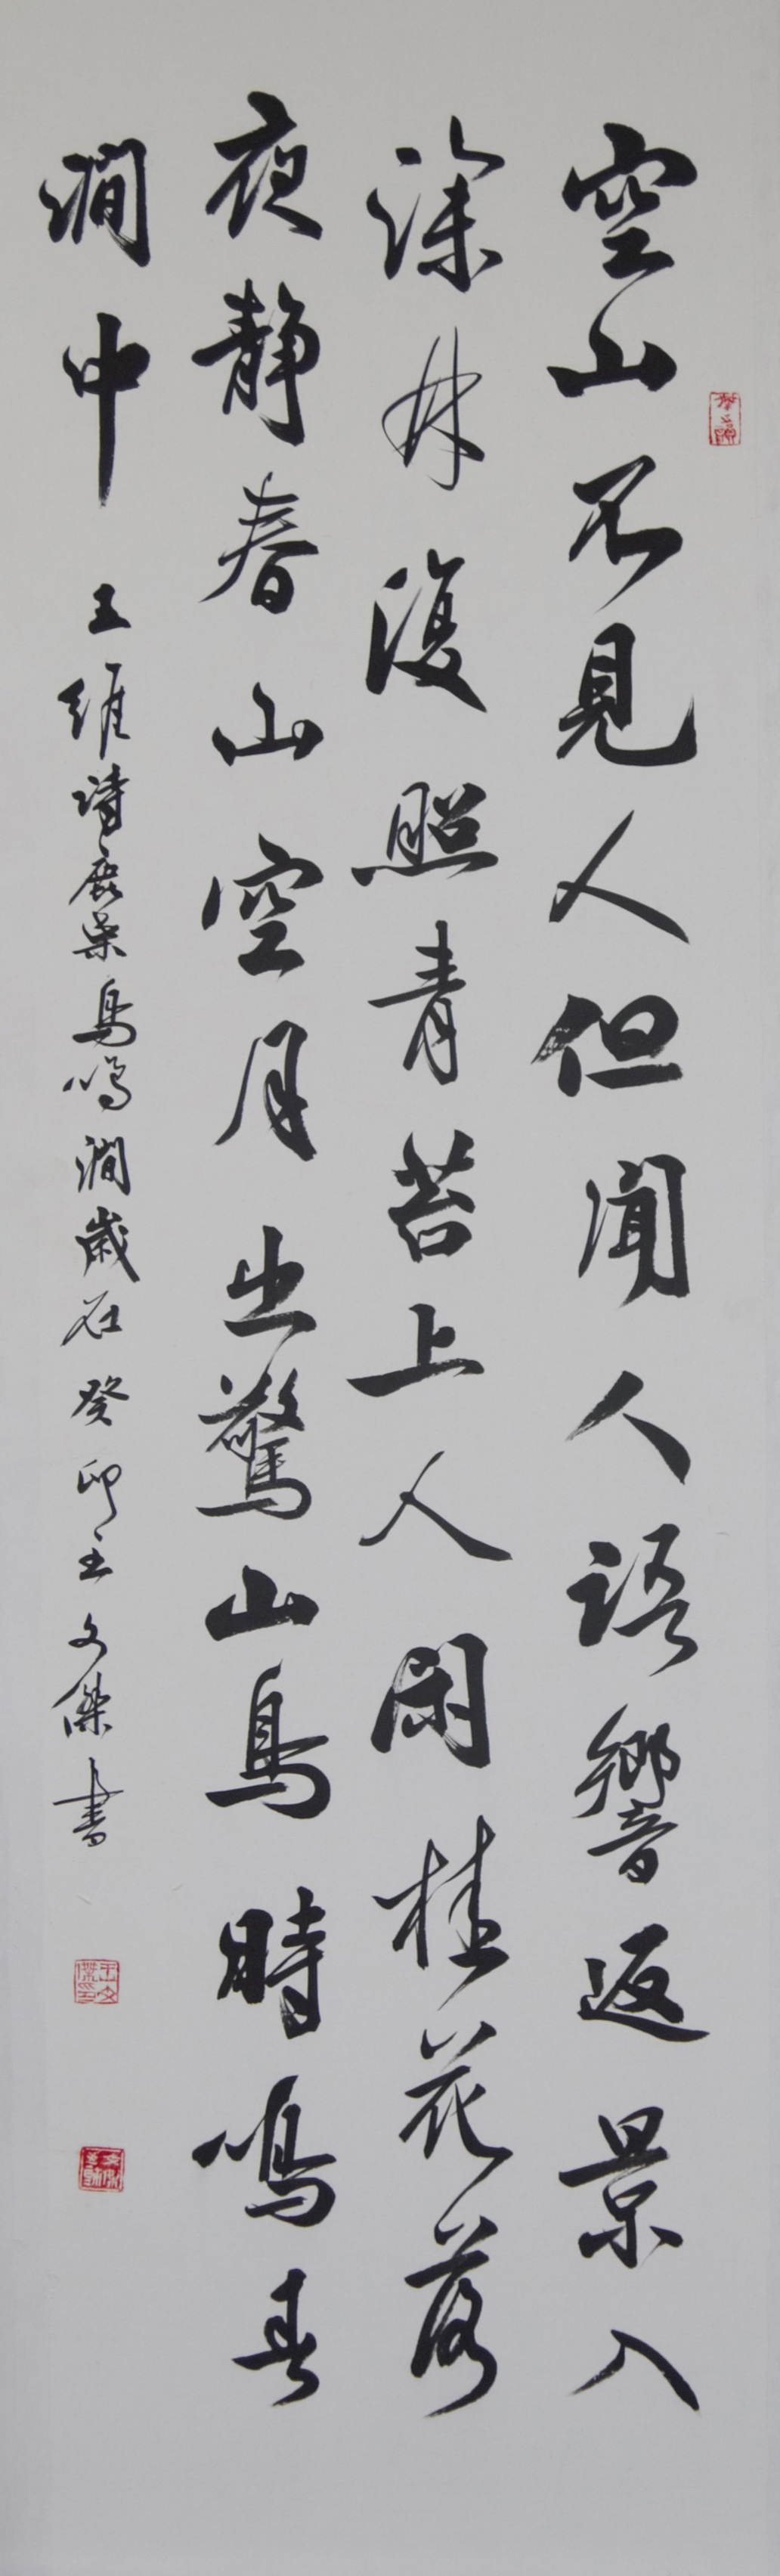 空山不見人但聞人語響返景入
深林復照青苔上人閑桂花落
夜靜春山空月出驚山鳥時鳴春
澗中
王維詩鹿柴鳥鳴澗歲在癸卯王文傑書
王文傑印